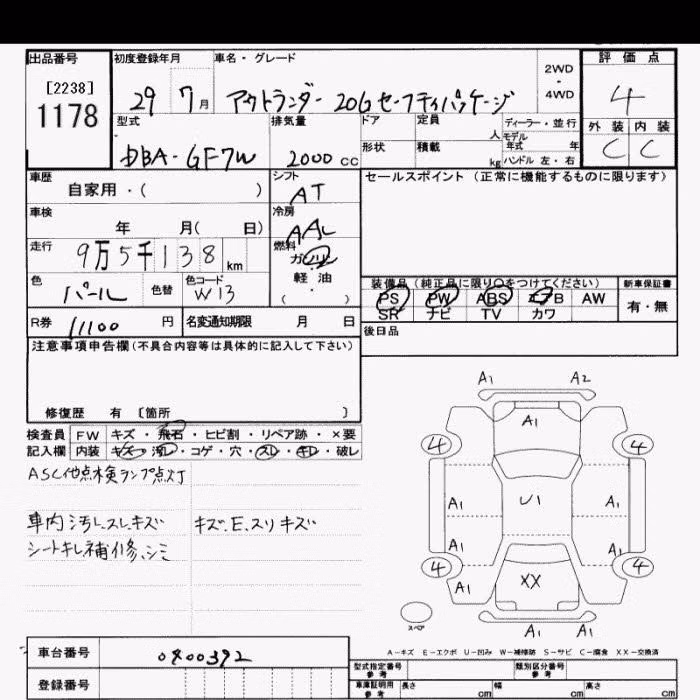 出品番号 初度登録年月 車名・グレード 2WD・4WD 評価点
[2238]
1178
29 7月 アウトランダー 20Gセーフティパッケージ 4
型式 排気量 ドア 定員 人 ディーラー・並行 外装 内装
モデル年式 年
DBA-GF7W 2000cc 形状 積載 kg ハンドル 左・右 C C
車歴 シフト セールスポイント (正常に機能するものに限ります)
自家用・( ) AT
車検 冷房
年 月( 日) AAC
走行 燃料
9万5千138km ガソリン
色 色替 色コード 軽油
パール W13 ・( )
装備品(純正品に限り○をつけてください) 新車保証書
PS PW ABS エアB AW 有・無
SR ナビ TV カワ
R券 11100円 名変通知期限 月 日 後日品
注意事項申告欄(不具合内容等は具体的に記入して下さい)
修復歴 有 〔箇所 〕
検査員 FW キズ・飛石・ヒビ割・リペア跡・×要
記入欄 内装 キズ・汚れ・コゲ・穴・スレ・キレ・破レ
ASC他点検ランプ点灯
車内汚レ、スレ、キズ キズ、E、スリキズ
シートキレ補修、シミ
A1 A2
A1
4 4
A1 U1 A1
A1 A1
4 XX 4
A1
A1 A1
スペア
A-キズ E-エクボ U-凹み W-補修跡 S-サビ C-腐食 XX-交換済
車台番号 0400392
登録番号
型式指定番号 参考 類別区分番号 参考
車庫証明用 参考 長さ cm 幅 cm 高さ cm